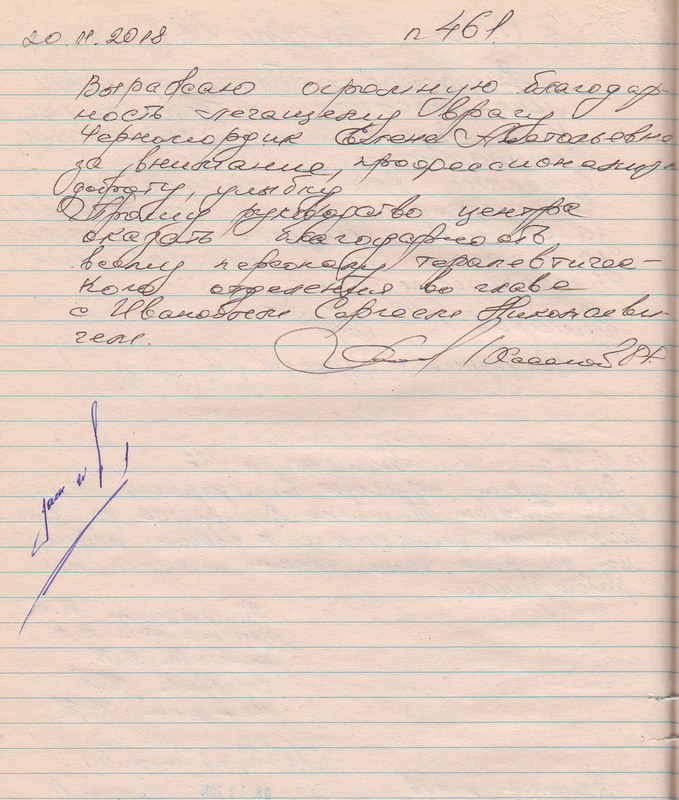 20.11.2018 п 461.
Выражаю огромную благодар-
ность лечащему врачу
Черномордик Елене Анатольевне
за внимание, профессионализм
доброту, улыбку
Прошу руководство центра
оказать благодарность
всему персоналу терапевтичес-
кого отделения во главе
с Ивановым Сергеем Николаеви-
чем.